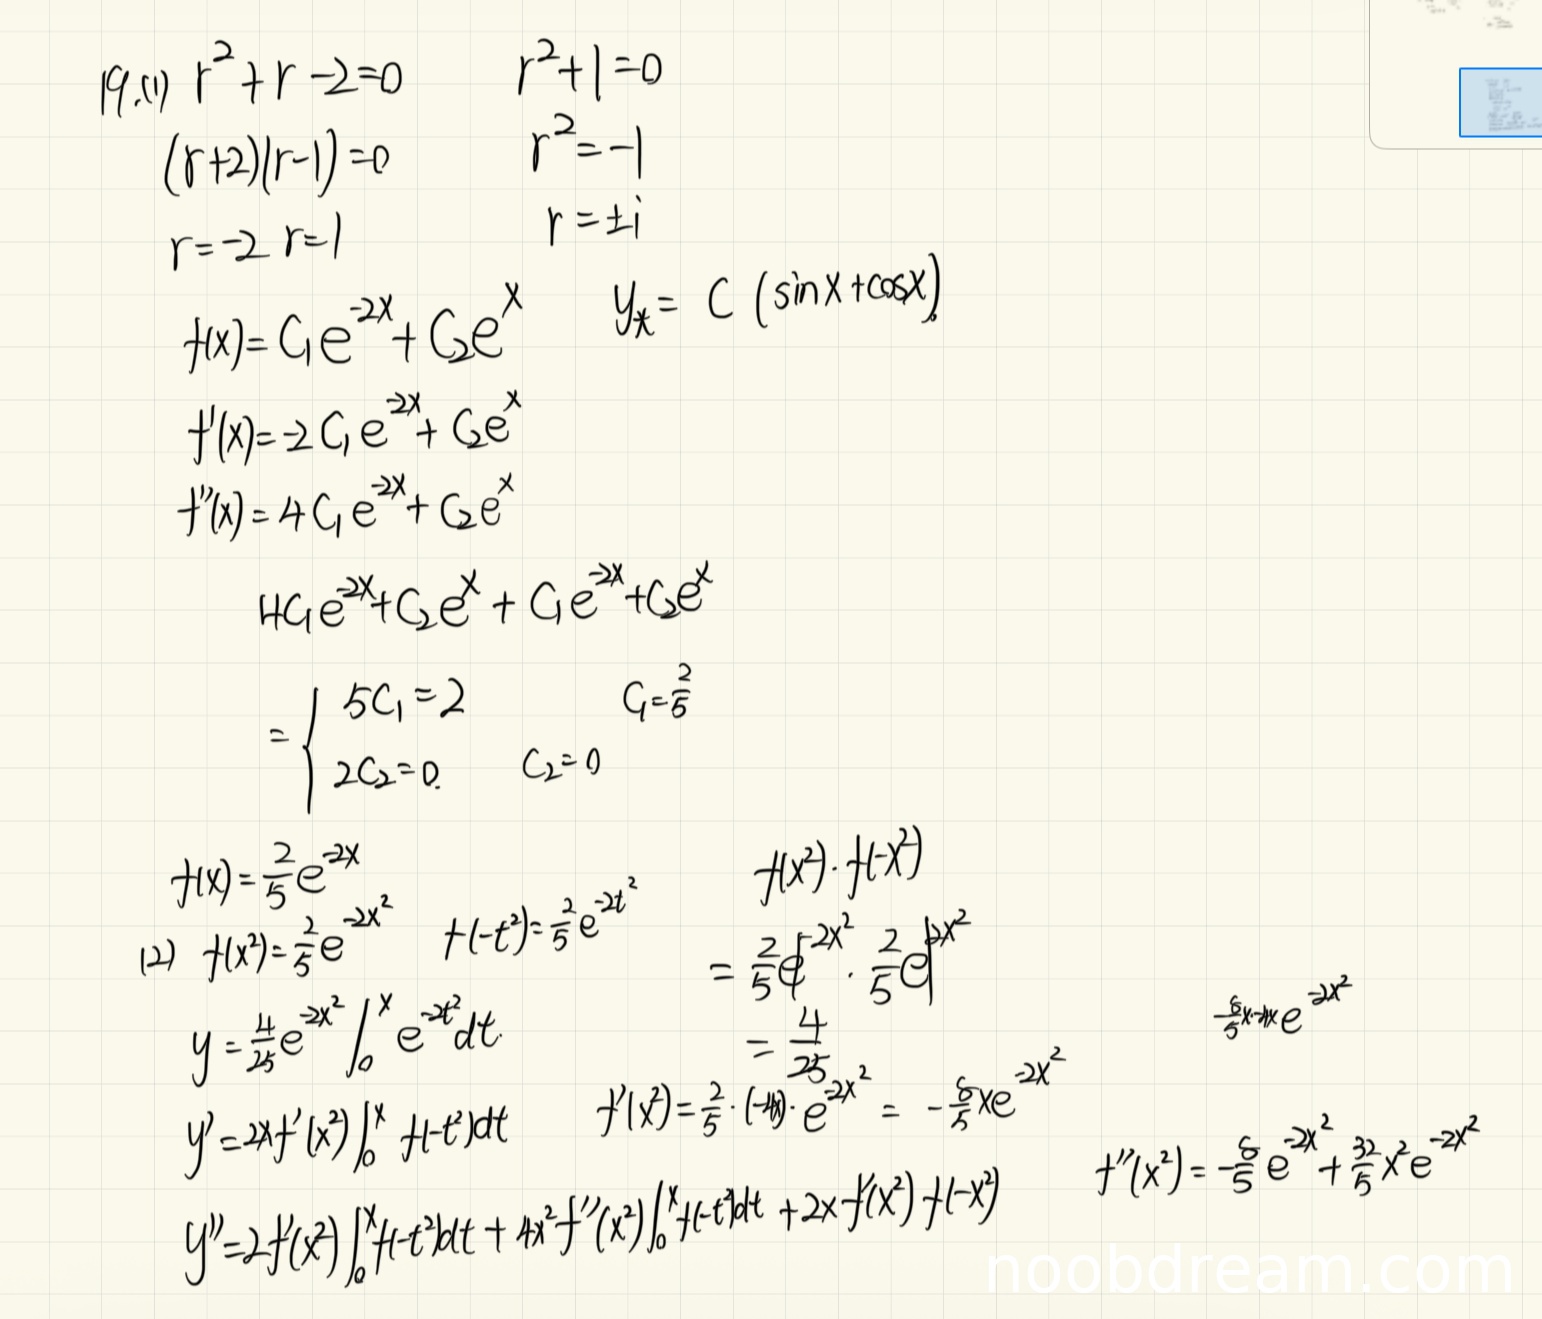 19.(1) r²+r-2=0 r²+1=0
(r+2)(r-1)=0 r²=-1
r=-2 r=1 r=±i
f(x)=C₁e^{-2x}+C₂e^{x} y*= C (sinx+cosx).
f'(x)=-2C₁e^{-2x}+C₂e^{x}
f''(x)=4C₁e^{-2x}+C₂e^{x}
4C₁e^{-2x}+C₂e^{x}+C₁e^{-2x}+C₂e^{x}
= { 5C₁=2 C₁=2/5
2C₂=0. C₂=0
f(x)=2/5 e^{-2x} f(x²)·f(-x²)
(2) f(x²)=2/5 e^{-2x²} f(-t²)=2/5 e^{-2t²} = 2/5 e^{-2x²} · 2/5 e^{2x²}
y=4/25 e^{-2x²} ∫₀^x e^{-2t²}dt. = 4/25 e^{-2x²}
y'=2xf'(x²)∫₀^x f(-t²)dt f'(x²)=2/5·(-4x)·e^{-2x²} = -8/5 xe^{-2x²}
f''(x²)=-8/5 e^{-2x²}+32/5 x²e^{-2x²}
y''=2f'(x²)∫₀^x f(-t²)dt+4x²f''(x²)∫₀^x f(-t²)dt+2xf'(x²)f(-x²)
noobdream.com